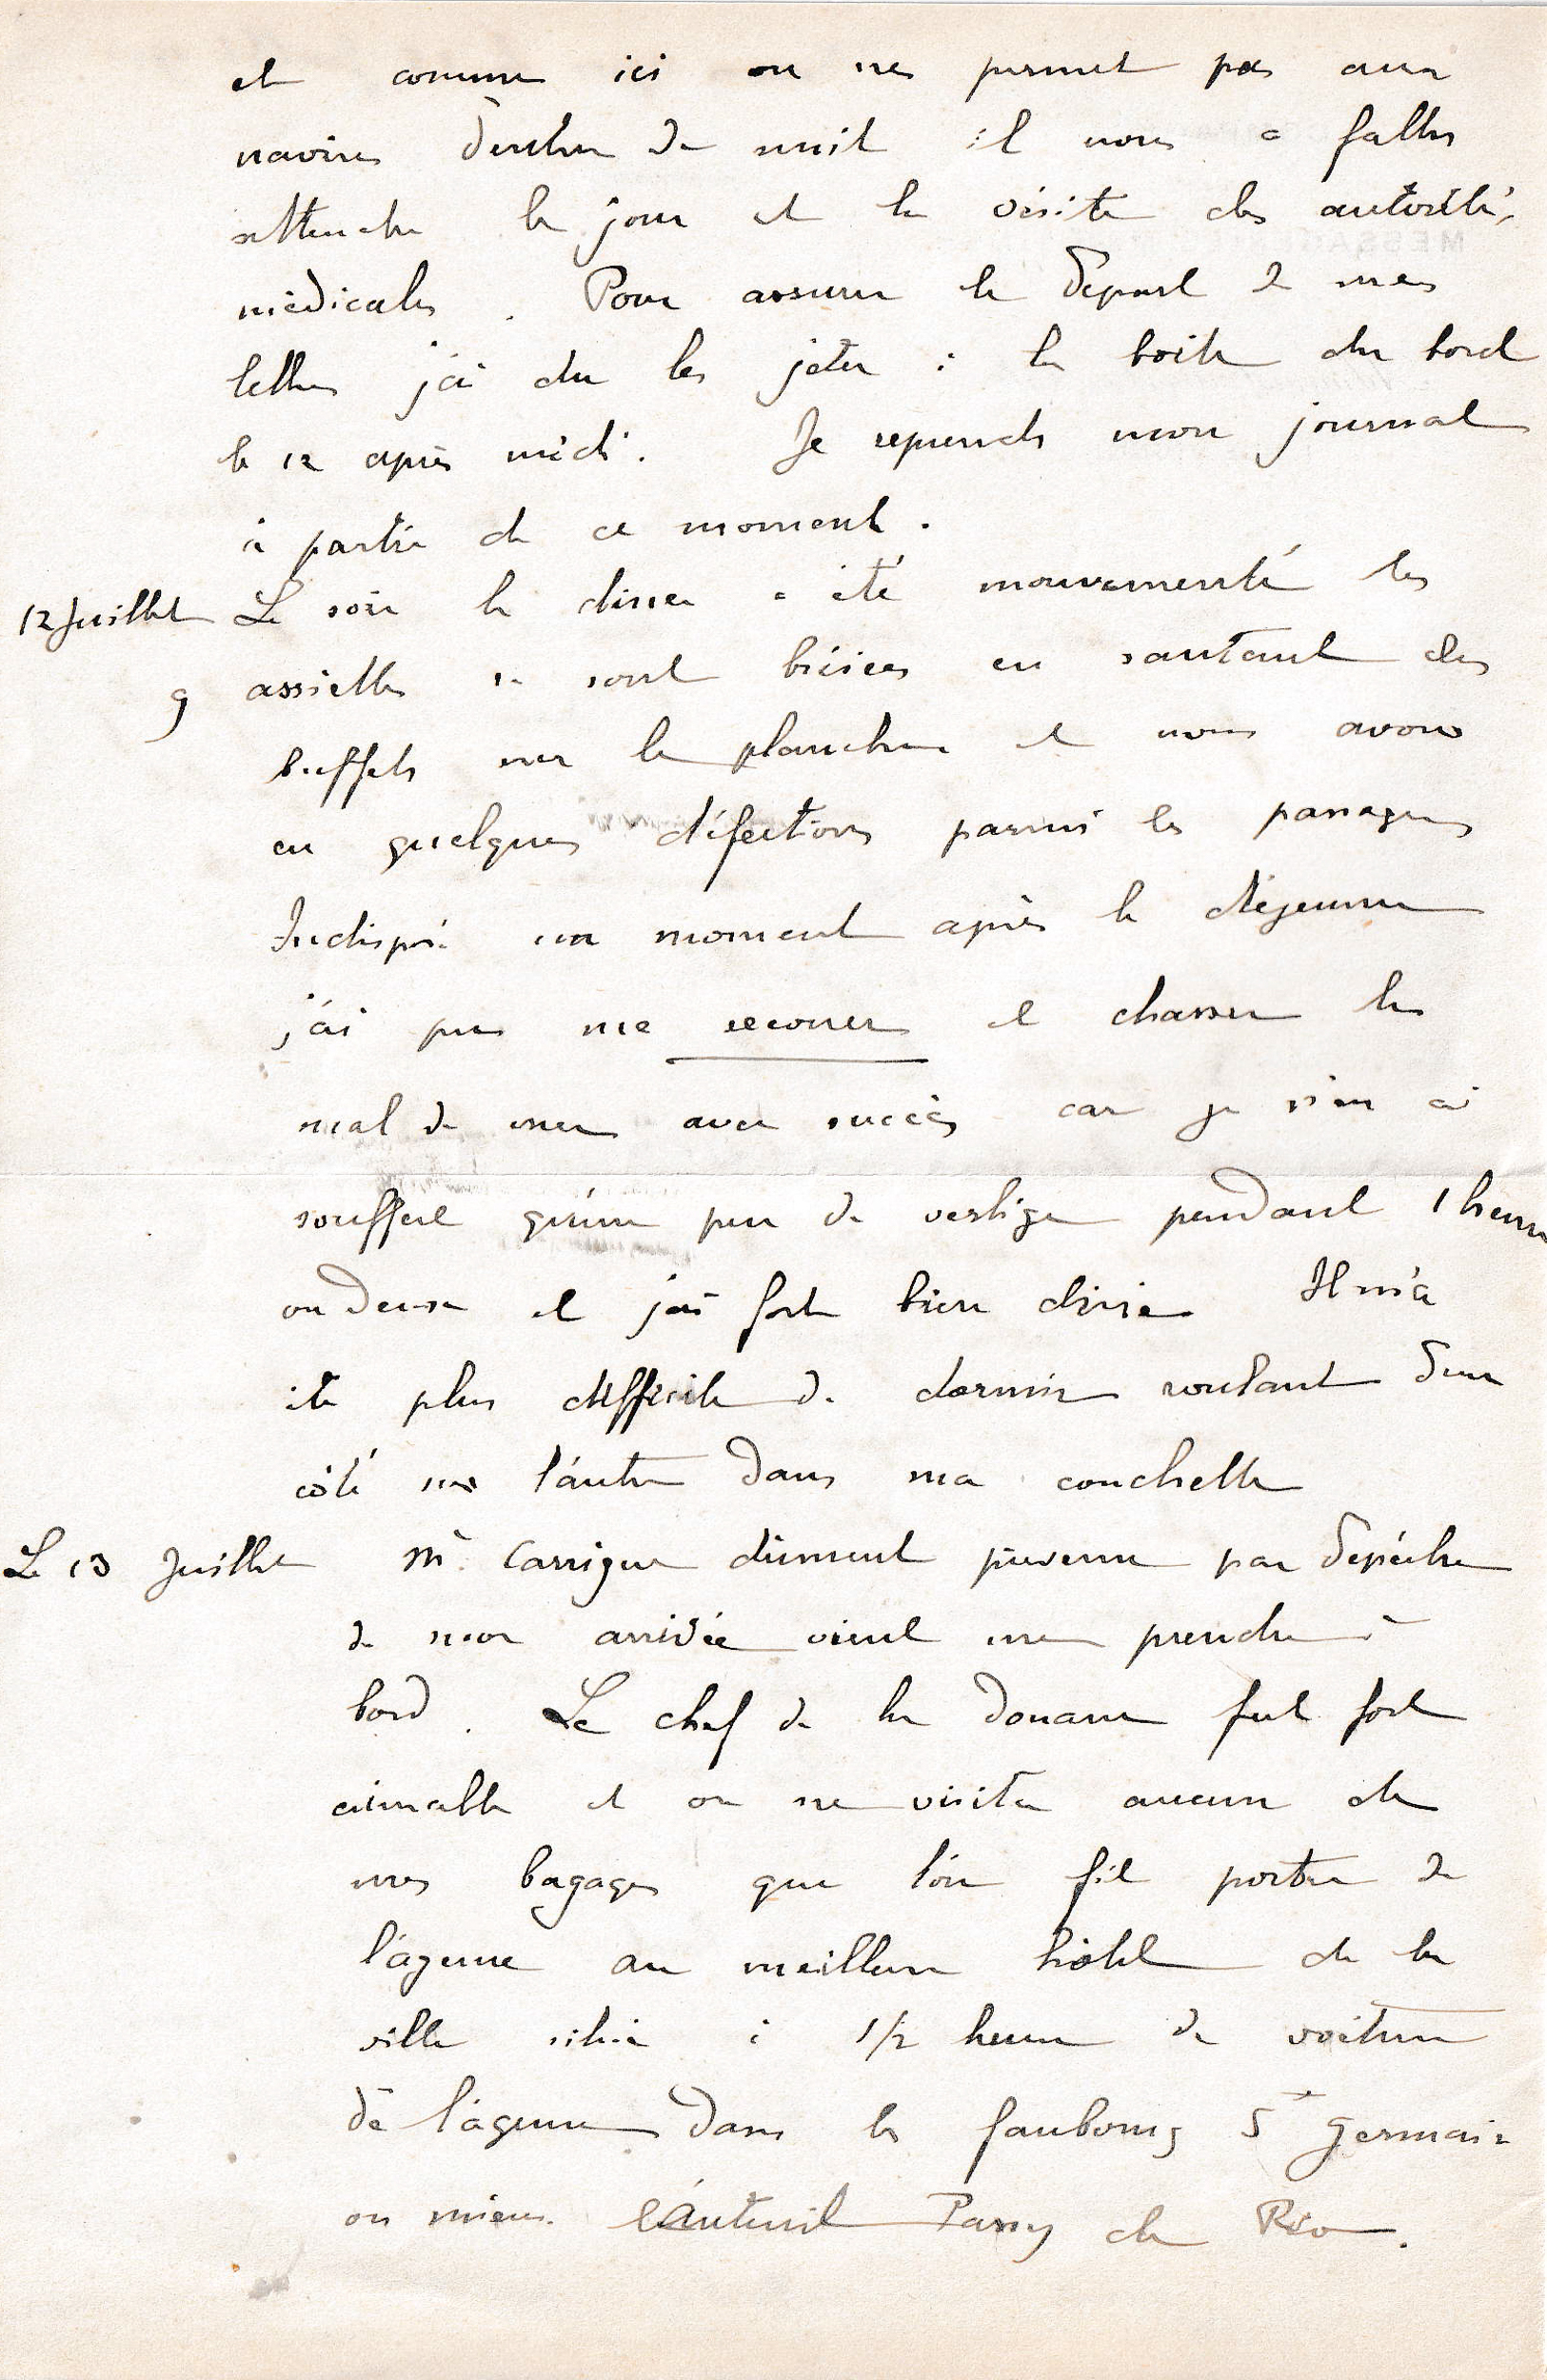 et comme ici on ne permet pas aux
navires d'entrer de nuit il nous a fallu
attendre le jour et la visite des autorités
médicales. Pour assurer le départ de mes
lettres j'ai du les jeter à la boite du bord
le 12 après midi. Je reprends mon journal
à partir de ce moment.
12 Juillet Le soir le diner a été mouvementé les
9 assiettes se sont brisées en sautant des
buffets sur le plancher et nous avons
eu quelques défections parmi les passagers
Indisposé un moment après le déjeuner
j'ai pu me secouer et chasser le
mal de mer avec succès car je n'en ai
souffert qu'un peu de vertige pendant 1 heure
ou deux et j'ai fort bien diné Il m'a
été plus difficile de dormir roulant d'un
côté sur l'autre dans ma couchette
Le 13 Juillet Mr Carrigue dûment prévenu par dépêche
de mon arrivée vient me prendre à
bord. Le chef de la douane fut fort
aimable et on ne visita aucun de
mes bagages que l'on fit porter de
l'agence au meilleur hôtel de la
ville situé à 1/2 heure de voiture
de l'agence dans le faubourg St Germain
ou mieux l'Auteuil Passy de Rio.